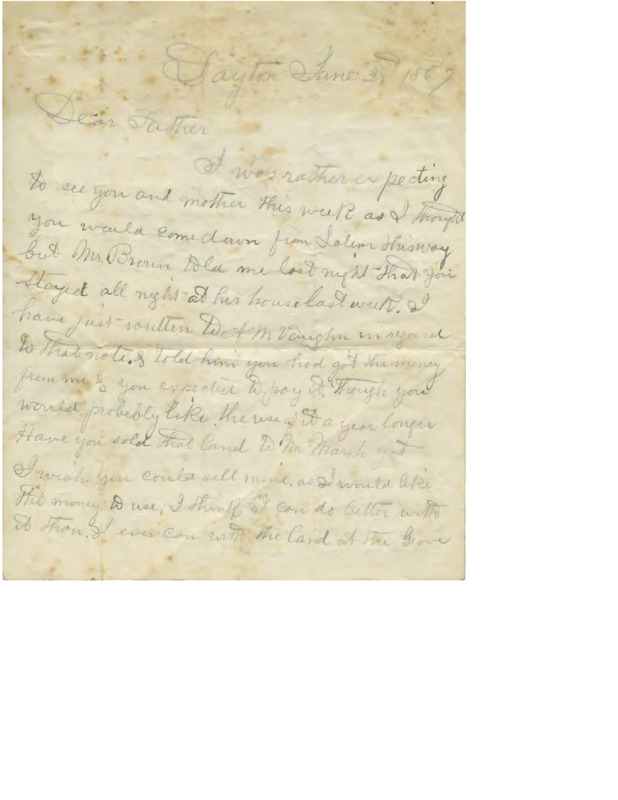 Dayton June 29 1867
Dear Father
I was rather expecting
to see you and mother this week as I thought
you would come down from Salem this way
but Mr Brown told me last night that you
stayed all night at his house last week. I
have just written to A M Vaughn in regard
to that note. & told him you had got the money
from me & you expected to pay it. Though you
would probibly like the use of it a year longer
Have you sold that land to Mr Marsh yet
I wish you could sell mine, as I would like
the money to use, I think I can do better with
it than I ever can with the land at the Grove